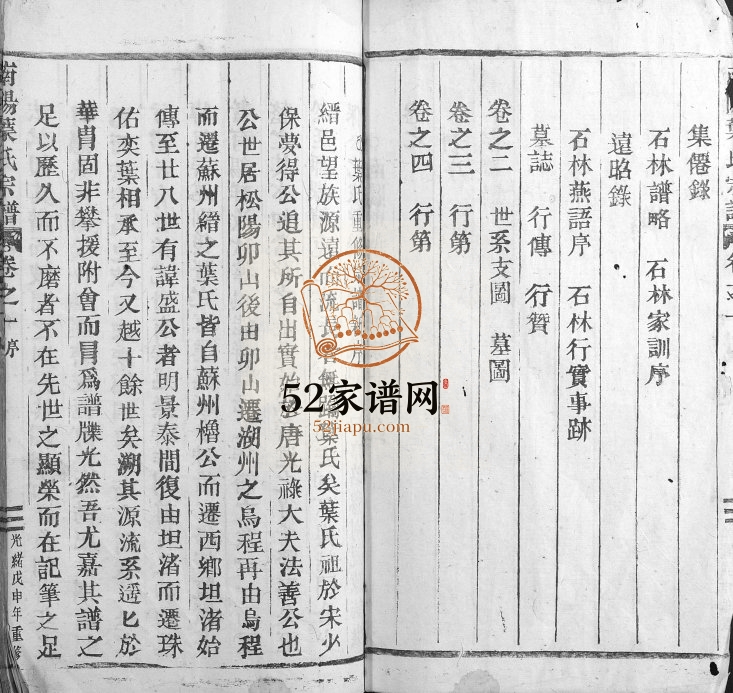 集僊錄
石林譜略　石林家訓序
遠昭錄
石林燕語序　石林行實事跡
墓誌　行傳　行贊
卷之二　世系支圖　墓圖
卷之三　行第
卷之四　行第
葉氏重修
縉邑望族源遠而流長者無踰葉氏矣葉氏祖於宋少
保夢得公追其所自出實始於唐光祿大夫法善公也
公世居松陽卯山後由卯山遷湖州之烏程再由烏程
而遷蘇州縉之葉氏皆自蘇州櫓公而遷西鄉坦渚始
傳至廿八世有諱盛公者明景泰間復由坦渚而遷珠
佑奕葉相承至今又越十餘世矣溯其源流系遥匕於
華胄固非攀援附會而冐爲譜牒光然吾尤嘉其譜之
足以歷久而不磨者不在先世之顯榮而在記筆之足
南陽葉氏宗譜　卷之一　序
光緒戊申年重修
52家谱网
52jiapu.com